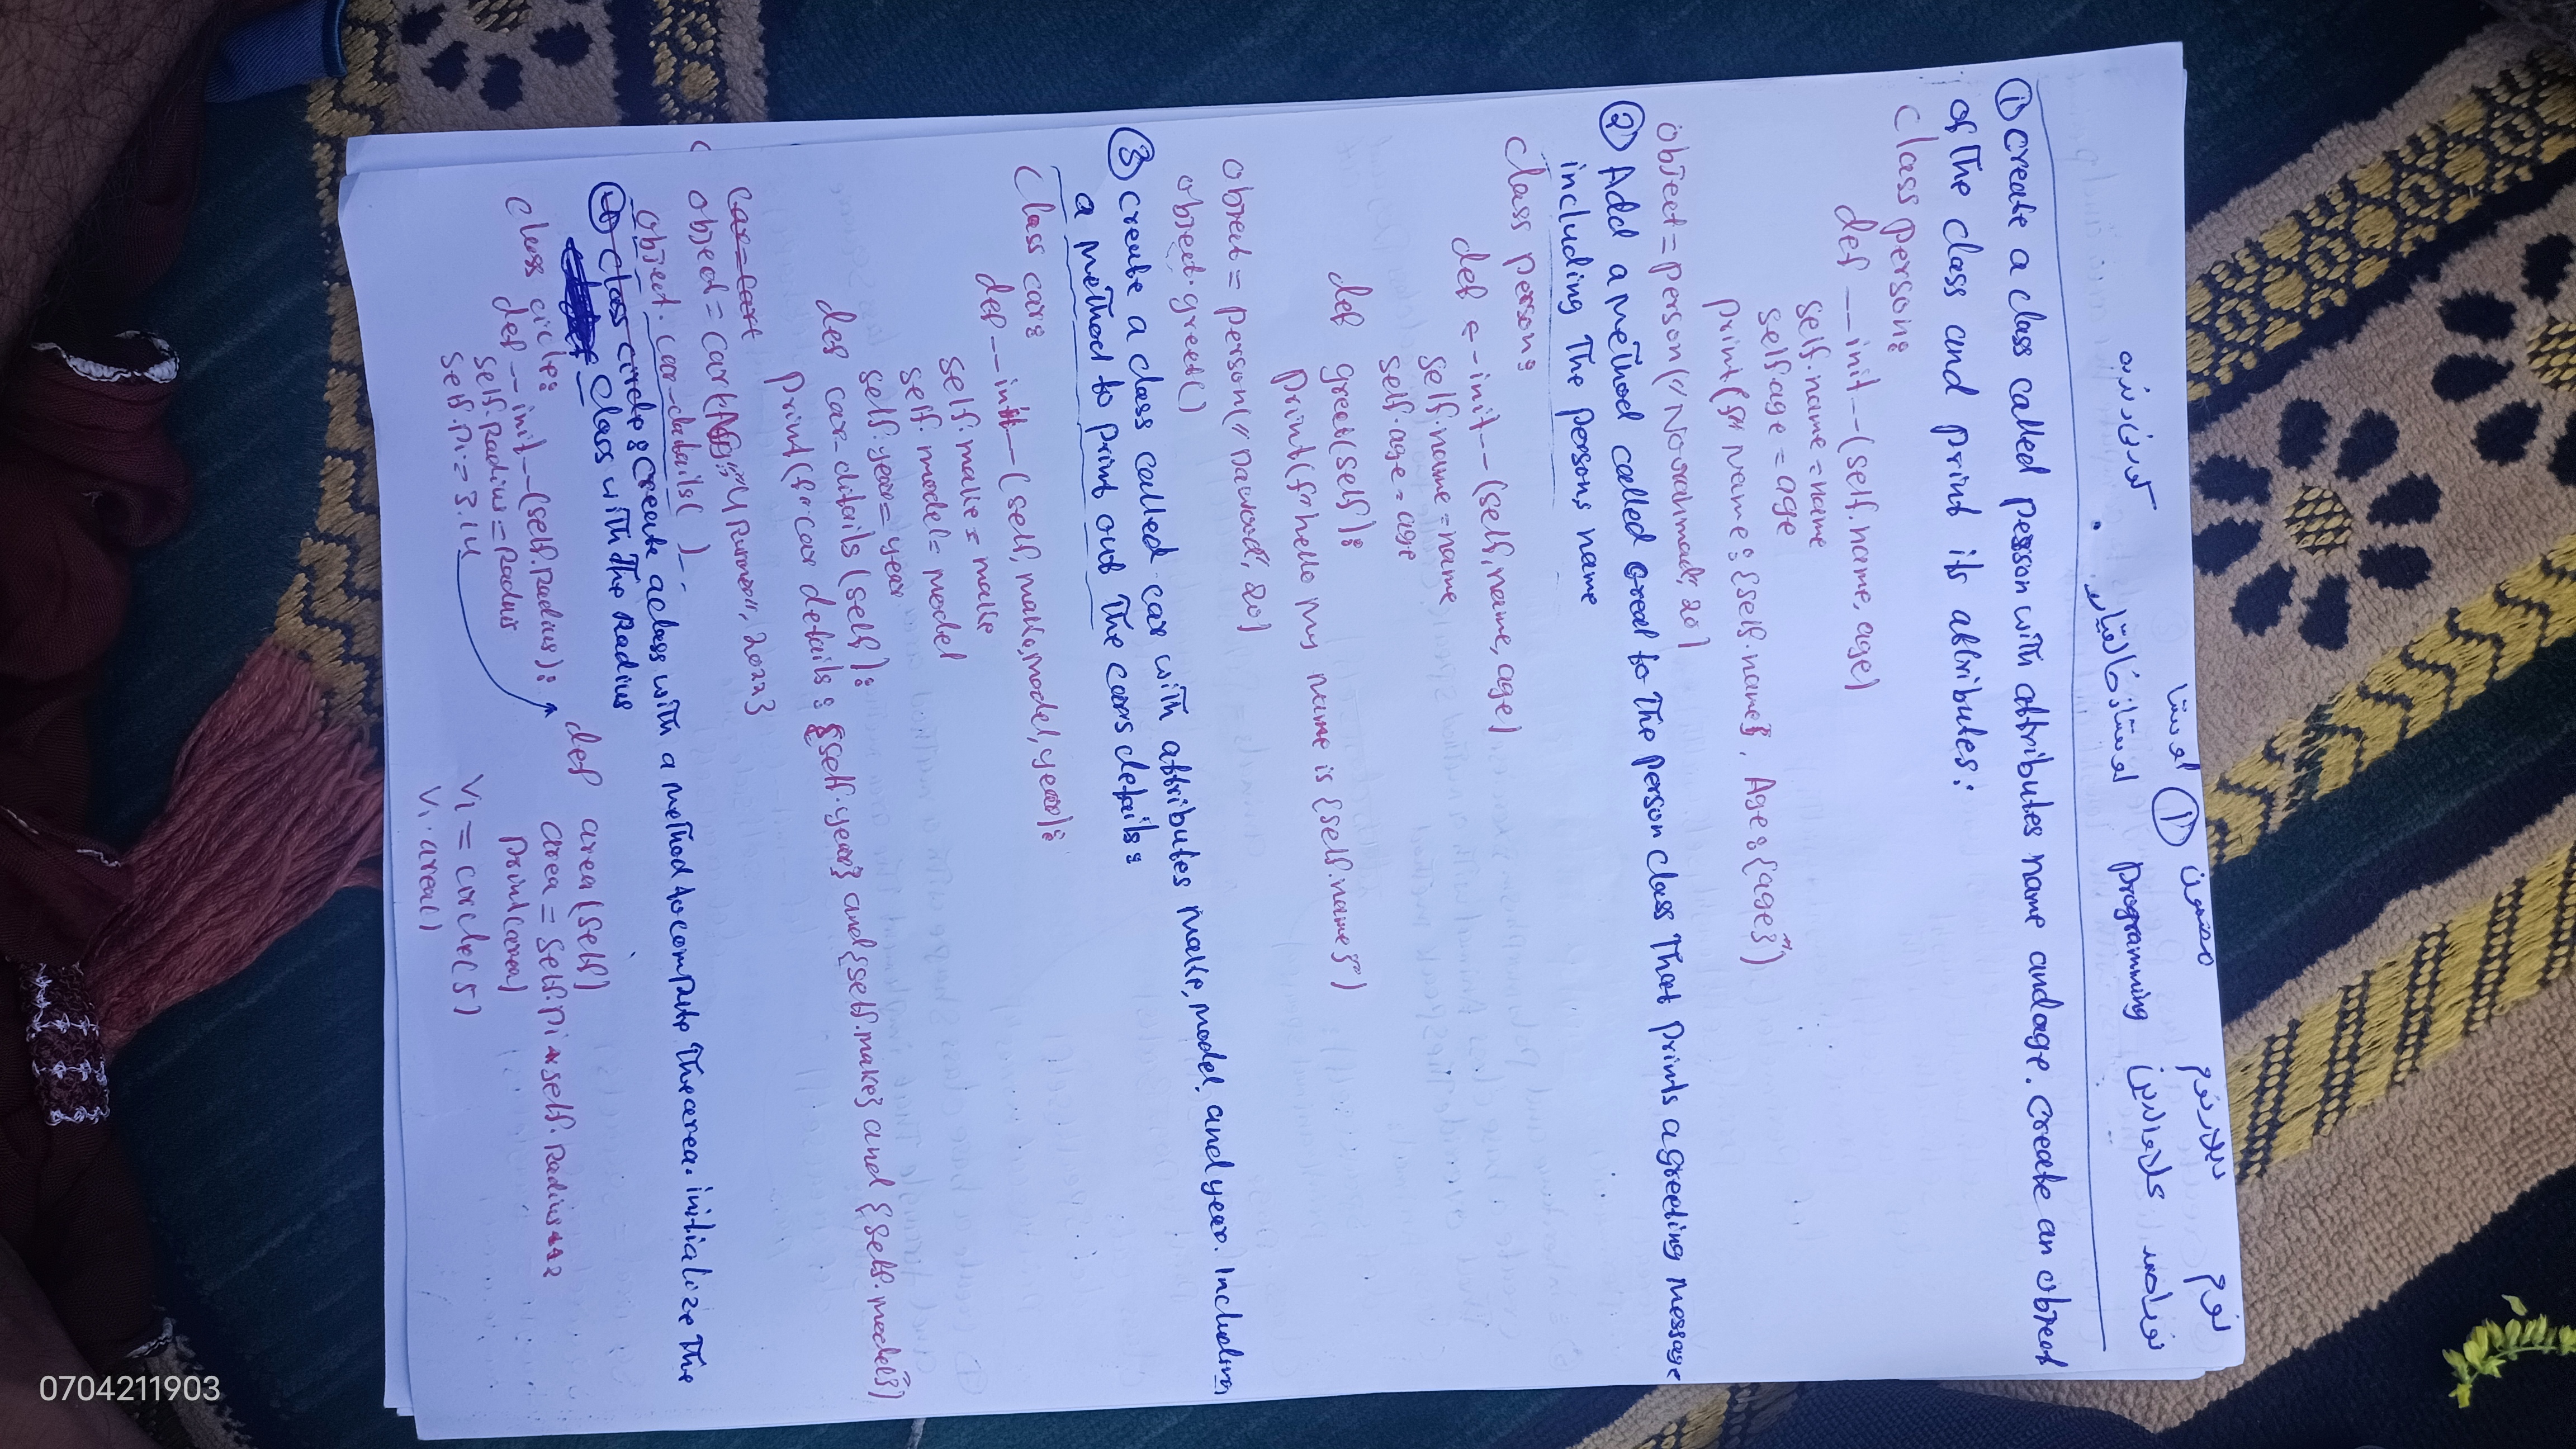 نوم دپلار نوم مضمون ① اوستا
نوراحمد علاوالدین programming اوستاذ ذالقیار . کورنی دنده
① create a class called person with attributes name and age. create an object
of the class and print its attributes:
class person:
def __init__(self.name, age)
self.name = name
self.age = age
print(f" Name: {self.name}, Age: {age}")
object = person("Noorahmad", 20)
② Add a method called Greet to the person class That prints a greeting message
including The persons name
class person:
def __init__(self, name, age)
self.name = name
self.age = age
def greet(self):
print(f"hello my name is {self.name}")
object = person("Dawood", 20)
object.greet()
③ create a class called car with attributes make, model, and year. Including
a method to print out the cars details:
class car:
def __init__(self, make, model, year):
self.make = make
self.model = model
self.year = year
def car_ditails(self):
print(f"car details: {self.year} and {self.make} and {self.model}")
car = cart
object = car( "4 Runner", 2022}
object. car_datails( )
④ class circle: create a class with a method to compute the area. initialize The
class with The Radius
class circle:
def __init__(self.Radius):
self.Radius = Raduis
self.Pi = 3.14
def area(self)
area = self.Pi * self. Radius**2
print(area)
V1 = circle(5)
V1.area()
0704211903